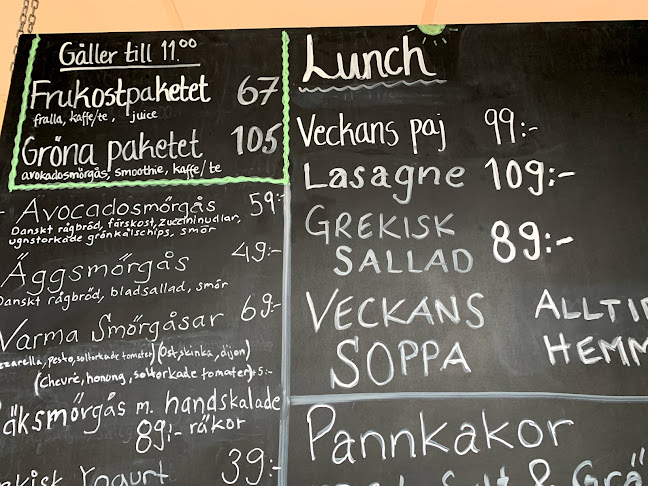 Gäller till 11.00
Frukostpaketet 67
fralla, kaffe/te, juice
Gröna paketet 105
avokadosmörgås, smoothie, kaffe/te
Avocadosmörgås 59:-
Danskt rågbröd, färskost, zuccininudlar,
ugnstorkade grönkålschips, smör
Äggsmörgås 49:-
Danskt rågbröd, bladsallad, smör
Varma Smörgåsar 69:-
pesto, soltorkade tomater) (Ost, skinka, dijon)
(chevré, honung, soltorkade tomater) +5:-
m. handskalade
89:- räkor
Yogurt 39:-
Lunch
Veckans paj 99:-
Lasagne 109:-
GREKISK
SALLAD 89:-
VECKANS
SOPPA
Pannkakor